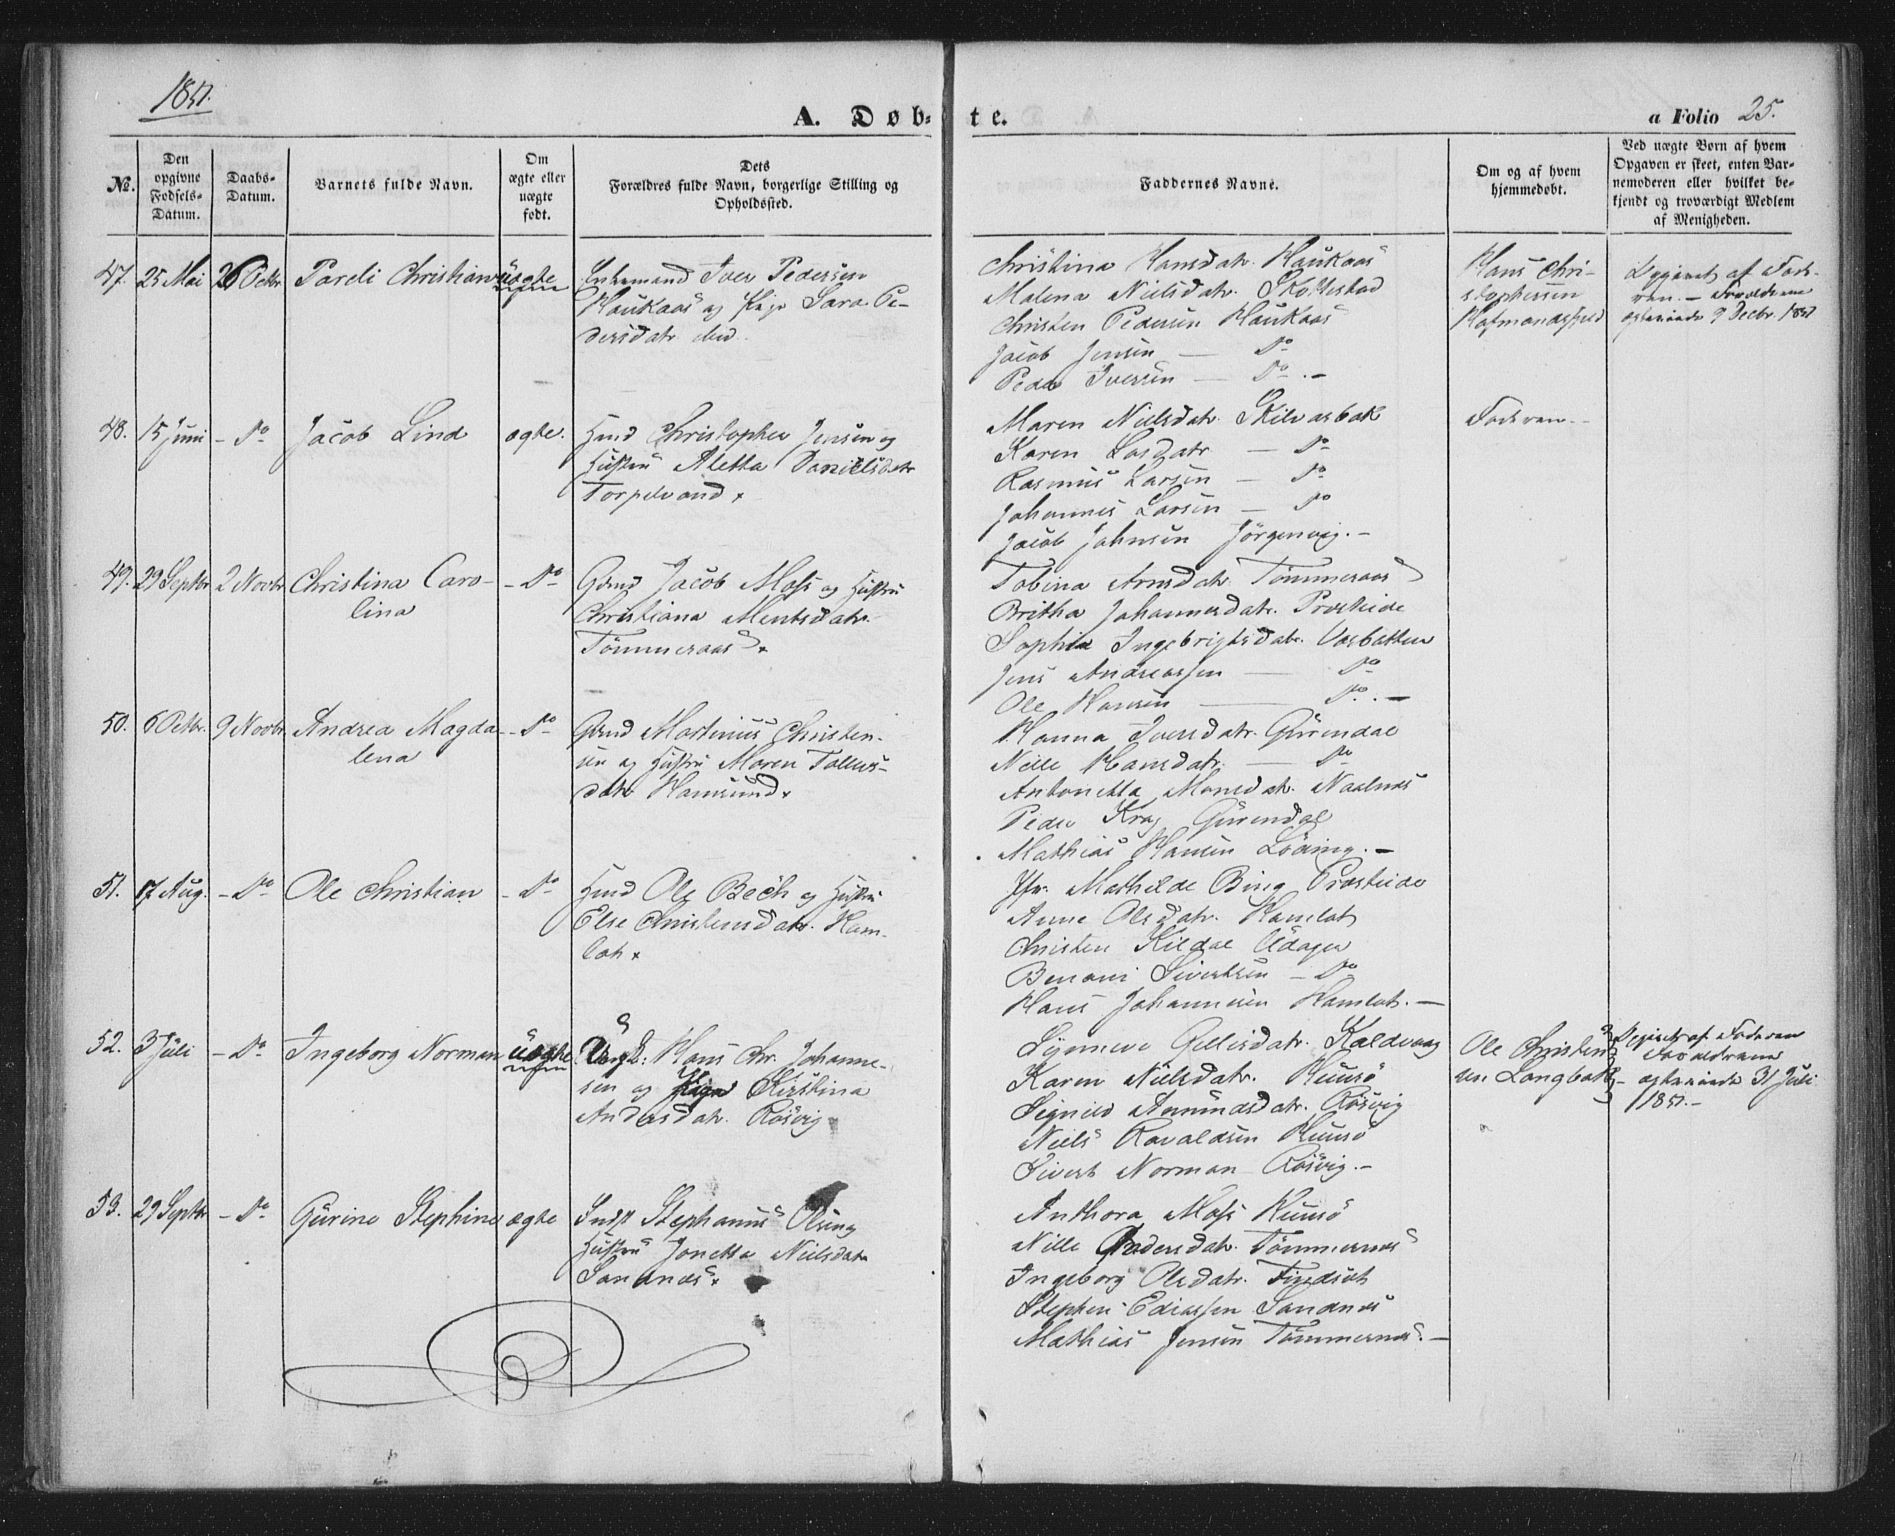 1851.
A. Døb-
te.
a Folio 25.
No.
Den
opgivne
Fødsels-
Datum.
Daabs-
Datum.
Barnets fulde Navn.
Om
ægte eller
uægte
født.
Dets
Forældres fulde Navn, borgerlige Stilling og
Opholdssted.
Faddernes Navne.
Om og af hvem
hjemmedøbt.
Ved uægte Børn af hvem
Opgaven er skeet, enten Bar-
nemoderen eller hvilket be-
kjendt og troværdigt Medlem
af Menigheden.
47. 25 Mai 26 Octbr. Pareli Christian uægte
Enkemand Iver Pedersen
Haukaas og Pige Sara Pe-
dersdatr. ibid.
Christina Hansdatr. Haukaas
Malena Nielsdatr. Skottestad
Christen Pedersen Haukaas
Jacob Jensen — Do
Peder Iversen — Do. —
Hans Chri-
stophersen
af Fade-
ren. — Forældrene
9 Decbr. 1851
48. 15 Juni - Do Jacob Lind ægte.
Huusmd Christopher Jensen og
Hustru Aletta Danielsdatr
Torpelvand.
Maren Nielsdatr. Skilvasbak
Karen Larsdatr — Do
Rasmus Larsen — Do
Johannes Larsen — Do
Jacob Johnsen Jörgenvig. —
Faderen. -
49. 29 Septbr 2 Novbr Christina Caro-
lina
- Do
Gmd Jacob Moss og Hustru
Christiana Mentsdatr.
Tömmeraas.
Tobina Arnsdatr. Tömmeraas
Britha Johannesdatr. Presteide
Sophia Ingebrigtsdatr. Vasbotten
Jens Andreassen — Do
Ole Hansen — Do. —
50. 6 Octbr. 9 Novbr. Andrea Magda-
lena
- Do
Gmd Martinus Christen-
sen og Hustru Maren Tollevs-
datr Hamsund.
Hanna Iversdatr. Gürendal
Nille Hansdatr. — Do
Antonetta Monsdatr. Naalnæs
Peder Krag Gürendal
Mathias Hansen Löding. —
51. 17 Aug. - Do Ole Christian - Do
Hmd Ole Bech og Hustru
Else Christensdatr. Ham-
lot.
Jfr. Mathilde Bing Præsteide
Anne Olsdatr. Hamlot
Christen Kildal
Benoni Sivertsen — Do
Hans Johannesen Hamlot. —
52. 3 Juli - Do Ingeborg Norman uægte
Ungk: Hans Chr. Johanne-
sen og Pige Kirstina
Andersdatr. Rösvig
Synneve Gullesdatr. Kaldvaag
Karen Nielsdatr. Huusö
Signild Amundsdatr. Rösvig
Niels Ravaldsen Huusö
Sivert Norman Rösvig. —
Ole Christen-
sen Langbak
af Faderen
Forældrene
31 Juli
1851. —
53. 29 Septbr - Do Gurine Stephine ægte
Indst Stephanus Olsen og
Hustru Jonetta Nielsdatr
Sandnæs.
Anthora Moss Huusö
Nille Andersdatr. Tömmernæs
Ingeborg Olsdatr. Findset
Stephen Ediassen Sandnæs
Mathias Jensen Tömmernæs. —